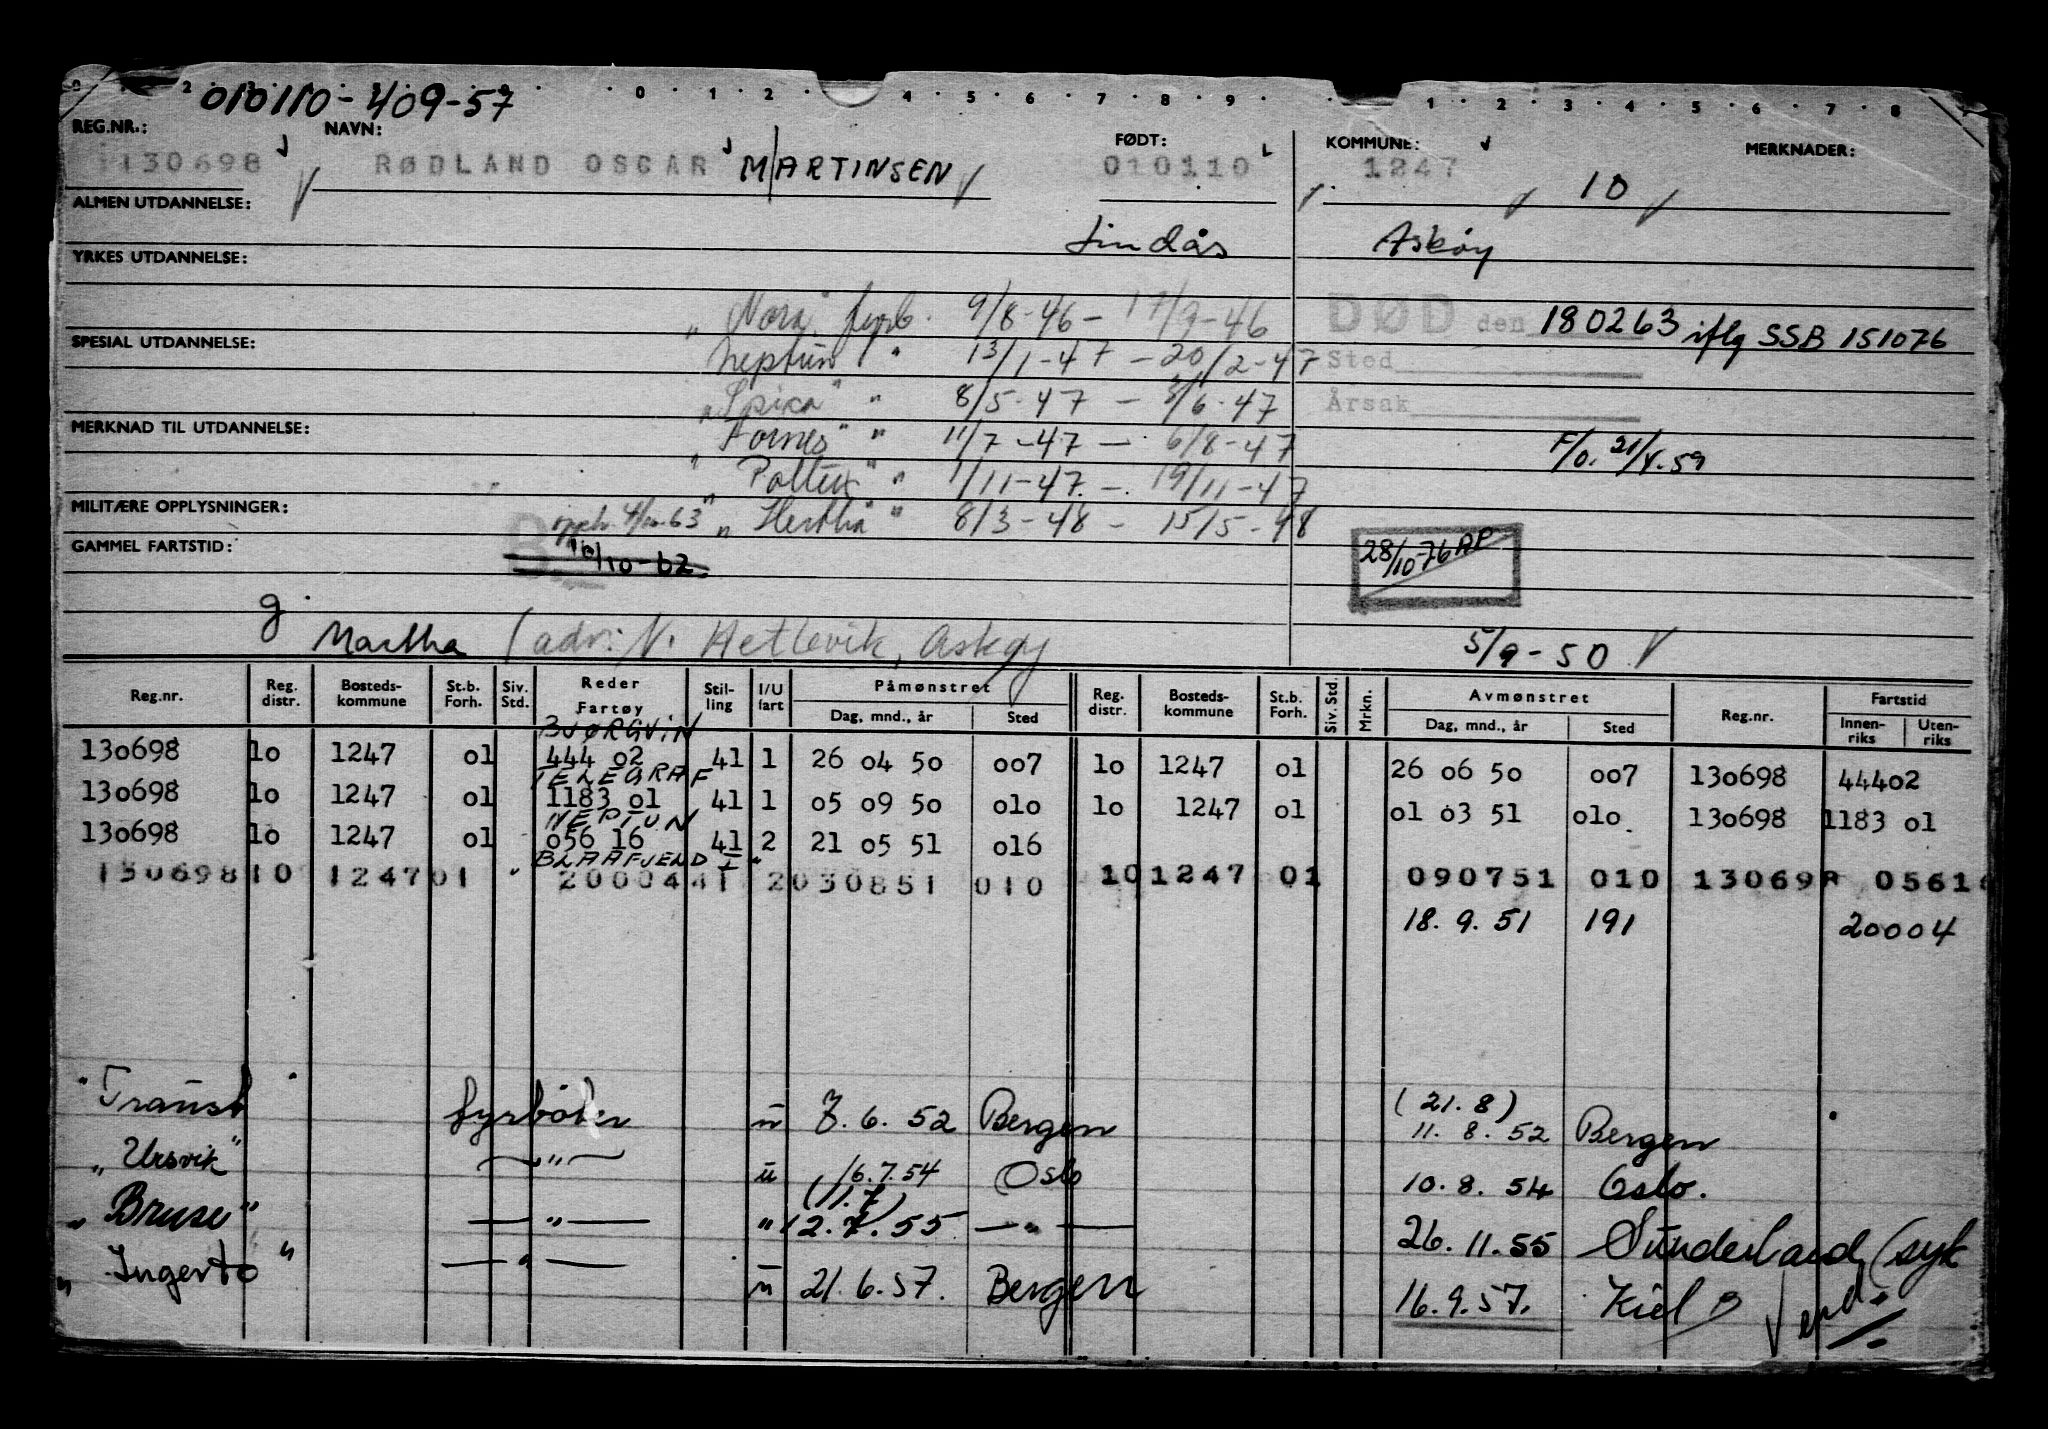 010110-409-57
REG.NR.: NAVN: FØDT: KOMMUNE: MERKNADER:
130698 RØDLAND OSCAR MARTINSEN 010110 1247 10
ALMEN UTDANNELSE: Lindås Askøy
YRKES UTDANNELSE:
"Nora" fyrb. 9/8-46 - 17/9-46 DØD den 180263 iflg SSB 151076
SPESIAL UTDANNELSE: Neptun " 13/1-47 - 20/2-47 Sted
"Spica" " 8/5-47 - /6-47 Årsak
MERKNAD TIL UTDANNELSE: Fornes" " 11/7-47 - 6/8-47 F/O. 21/4.59
" " 1/11-47 - 19/11-47
MILITÆRE OPPLYSNINGER: 4/10-63 " Hertha" " 8/3-48 - 15/5-48
GAMMEL FARTSTID: /10-62 28/10 76 AP
g.
Martha (adr: N. Hetlevik, Askøy 5/9-50
Reg.nr. Reg. distr. Bosteds-kommune St.b. Forh. Siv. Std. Reder Fartøy Stil-ling I/U fart Påmønstret Dag, mnd., år Sted Reg. distr. Bosteds-kommune St.b. Forh. Siv. Std. Mrkn. Avmønstret Dag, mnd., år Sted Reg.nr. Fartstid Innen-riks Uten-riks
BJØRGVIN
130698 10 1247 01 444 02 41 1 26 04 50 007 10 1247 01 26 06 50 007 130698 44402
TELEGRAF
130698 10 1247 01 1183 01 41 1 05 09 50 010 10 1247 01 01 03 51 010 130698 1183 01
NEPTUN
130698 10 1247 01 056 16 41 2 21 05 51 016
BLAAFJELD I "
130698 10 1247 01 20004 41 2 030851 010 10 1247 01 090751 010 130698 05616
18. 9. 51 191 20004
(21. 8)
"Transit" fyrbøter u 7. 6. 52 Bergen 11. 8. 52 Bergen
"Ursvik" — " — u 16.7.54 Oslo 10. 8. 54 Oslo.
(11.7)
"Bruse" — " — " 12. 7. 55 — " — 26. 11. 55 Sunderland (syk
"Ingerto" — " — u 21. 6. 57. Bergen 16. 9. 57. Kiel